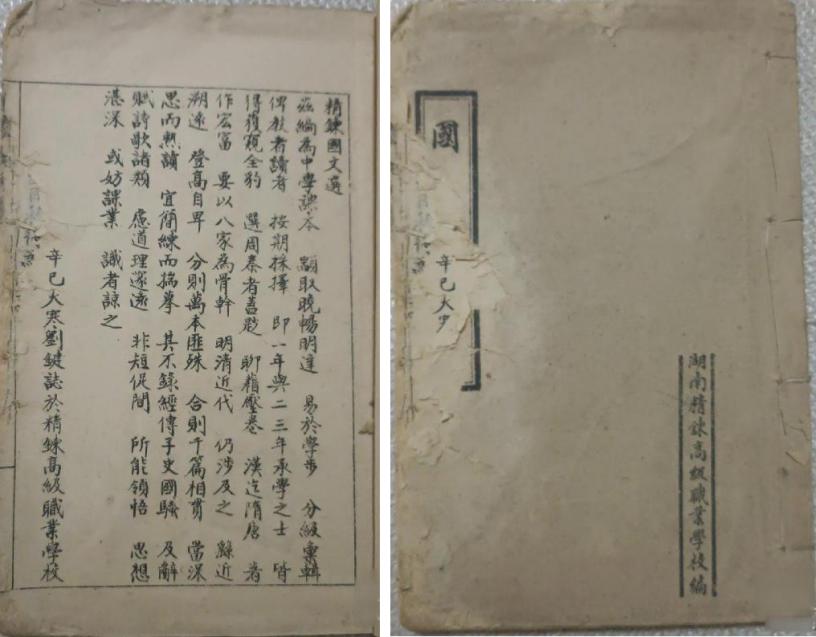 精鍊國文選
茲編為中學課本　顓取曉暢明達　易於學步　分級彙輯
俾教者讀者　按期採擇　即一年與二三年承學之士　皆
得獲窺全豹　選周秦者葢尠　聊藉壓卷　漢迄隋唐　著
作宏富　要以八家為骨幹　明清近代　仍涉及之　繇近
溯遠　登高自卑　分則萬本匪殊　合則千篇相貫　當深
思而熟讀　宜簡練而揣摹　其不錄經傳子史國騷　及辭
賦詩歌諸類　慮道理邃遠　非短促間　所能領悟　思想
湛深　或妨課業　識者諒之
辛巳大寒劉鍵誌於精鍊高級職業學校
國
辛巳大
湖南精鍊高級職業學校編